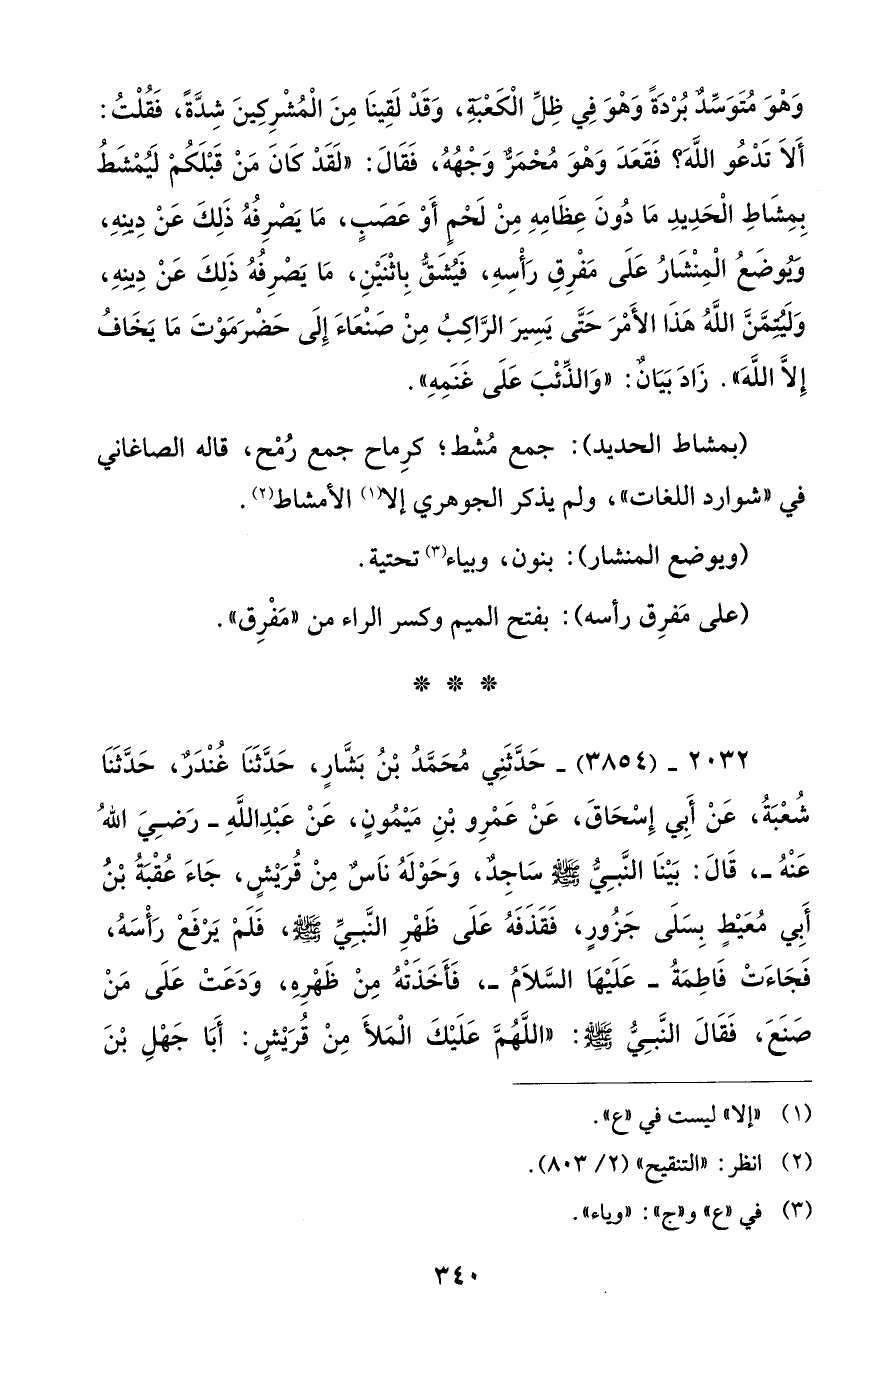 وَهْوَ مُتَوَسِّدٌ بُرْدَةً وَهْوَ فِي ظِلِّ الْكَعْبَةِ، وَقَدْ لَقِينَا مِنَ الْمُشْرِكِينَ شِدَّةً، فَقُلْتُ:
أَلاَ تَدْعُو اللَّهَ؟ فَقَعَدَ وَهْوَ مُحْمَرٌّ وَجْهُهُ، فَقَالَ: «لَقَدْ كَانَ مَنْ قَبْلَكُمْ لَيُمْشَطُ
بِمِشَاطِ الْحَدِيدِ مَا دُونَ عِظَامِهِ مِنْ لَحْمٍ أَوْ عَصَبٍ، مَا يَصْرِفُهُ ذَلِكَ عَنْ دِينِهِ،
وَيُوضَعُ الْمِنْشَارُ عَلَى مَفْرِقِ رَأْسِهِ، فَيُشَقُّ بِاثْنَيْنِ، مَا يَصْرِفُهُ ذَلِكَ عَنْ دِينِهِ،
وَلَيُتِمَّنَّ اللَّهُ هَذَا الأَمْرَ حَتَّى يَسِيرَ الرَّاكِبُ مِنْ صَنْعَاءَ إِلَى حَضْرَمَوْتَ مَا يَخَافُ
إِلاَّ اللَّهَ». زَادَ بَيَانٌ: «وَالذِّئْبَ عَلَى غَنَمِهِ».
(بمشاط الحديد): جمع مُشْط؛ كرِماح جمع رُمْح، قاله الصاغاني
في «شوارد اللغات»، ولم يذكر الجوهري إلا(١) الأمشاط(٢).
(ويوضع المنشار): بنون، وبياء(٣) تحتية.
(على مَفرِق رأسه): بفتح الميم وكسر الراء من «مَفْرِق».
* * *
٢٠٣٢ ـ (٣٨٥٤) ـ حَدَّثَنِي مُحَمَّدُ بْنُ بَشَّارٍ، حَدَّثَنَا غُنْدَرٌ، حَدَّثَنَا
شُعْبَةُ، عَنْ أَبِي إِسْحَاقَ، عَنْ عَمْرِو بْنِ مَيْمُونٍ، عَنْ عَبْدِاللَّهِ ـ رَضِيَ اللهُ
عَنْهُ ـ، قَالَ: بَيْنَا النَّبِيُّ ﷺ سَاجِدٌ، وَحَوْلَهُ نَاسٌ مِنْ قُرَيْشٍ، جَاءَ عُقْبَةُ بْنُ
أَبِي مُعَيْطٍ بِسَلَى جَزُورٍ، فَقَذَفَهُ عَلَى ظَهْرِ النَّبِيِّ ﷺ، فَلَمْ يَرْفَعْ رَأْسَهُ،
فَجَاءَتْ فَاطِمَةُ ـ عَلَيْهَا السَّلاَمُ ـ، فَأَخَذَتْهُ مِنْ ظَهْرِهِ، وَدَعَتْ عَلَى مَنْ
صَنَعَ، فَقَالَ النَّبِيُّ ﷺ: «اللَّهُمَّ عَلَيْكَ الْمَلأَ مِنْ قُرَيْشٍ: أَبَا جَهْلِ بْنَ
(١) «إلا» ليست في «ع».
(٢) انظر: «التنقيح» (٢/ ٨٠٣).
(٣) في «ع» و«ج»: «وياء».
٣٤٠